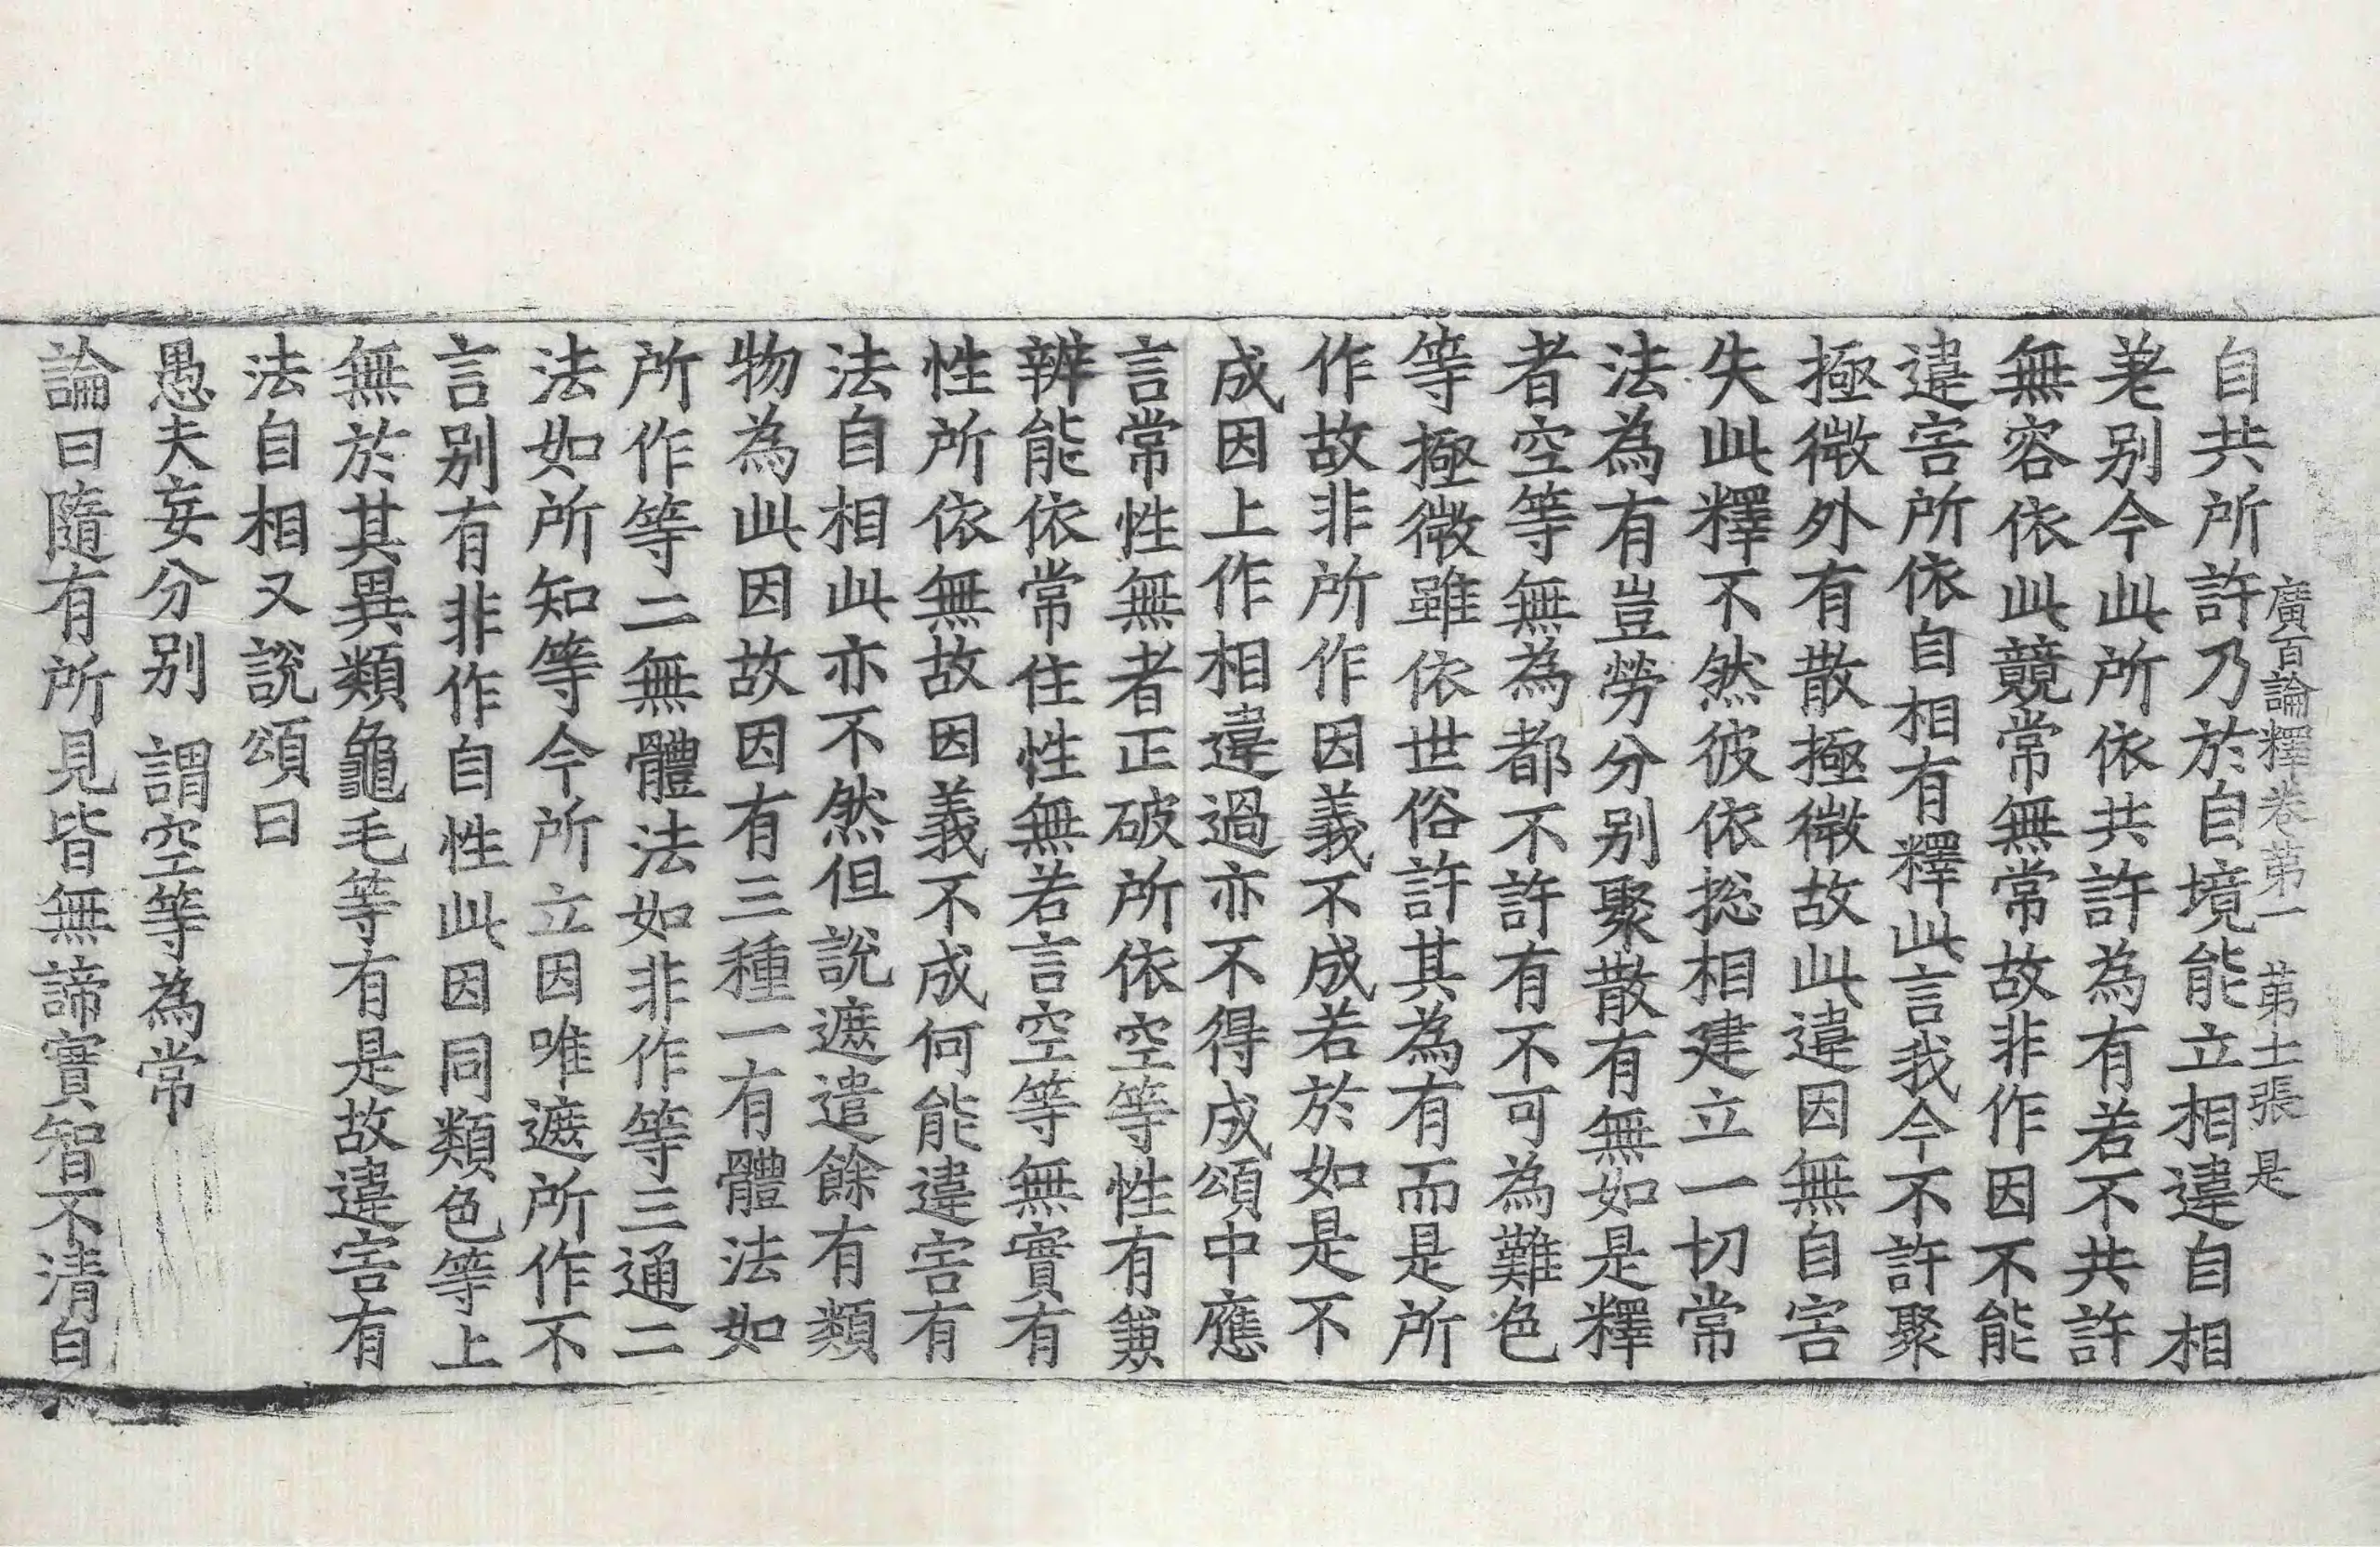 廣百論釋卷第一　第十二張　是
自共所許乃於自境能立相違自相
差别今此所依共許為有若不共許
無容依此競常無常故非作因不能
違害所依自相有釋此言我今不許聚
極微外有散極微故此違因無自害
失此釋不然彼依捴相建立一切常
法為有豈勞分别聚散有無如是釋
者空等無為都不許有不可為難色
等極微雖依世俗許其為有而是所
作故非所作因義不成若於如是不
成因上作相違過亦不得成頌中應
言常性無者正破所依空等性有兼
辨能依常住性無若言空等無實有
性所依無故因義不成何能違害有
法自相此亦不然但說遮遣餘有類
物為此因故因有三種一有體法如
所作等二無體法如非作等三通二
法如所知等今所立因唯遮所作不
言别有非作自性此因同類色等上
無於其異類龜毛等有是故違害有
法自相又說頌曰
愚夫妄分别　謂空等為常
論曰隨有所見皆無諦實智不清自